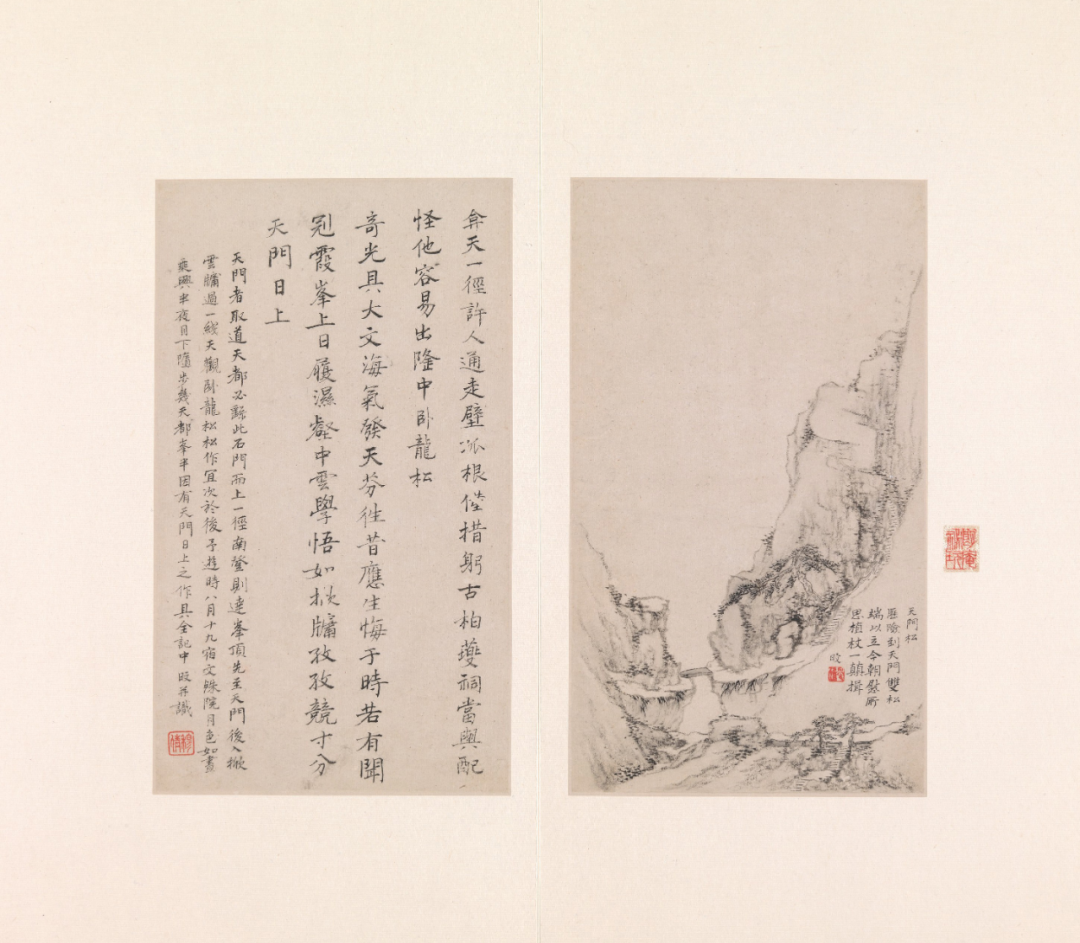 天門松
歷險到天門雙松
端以立今朝慰所
思植杖一顛揖
旼
弇天一徑許人通走壁孤根措躬古柏夔祠當與配
怪他容易出隆中臥龍松
奇光具大文海氣發天芬往昔應生悔于時若有聞
霞峯上日履濕壑中雲學悟如牖孜孜競寸分
天門日上
天門者取道天都必歸此石門而上一徑南登則達峯頂先至天門後入
雲牖過一綫天觀臥龍松松作宜次於後予遊時八月十九宿文殊院月色如晝
乘興半夜月下隨步幾天都峯半因有天門日上之作具全記中旼并識